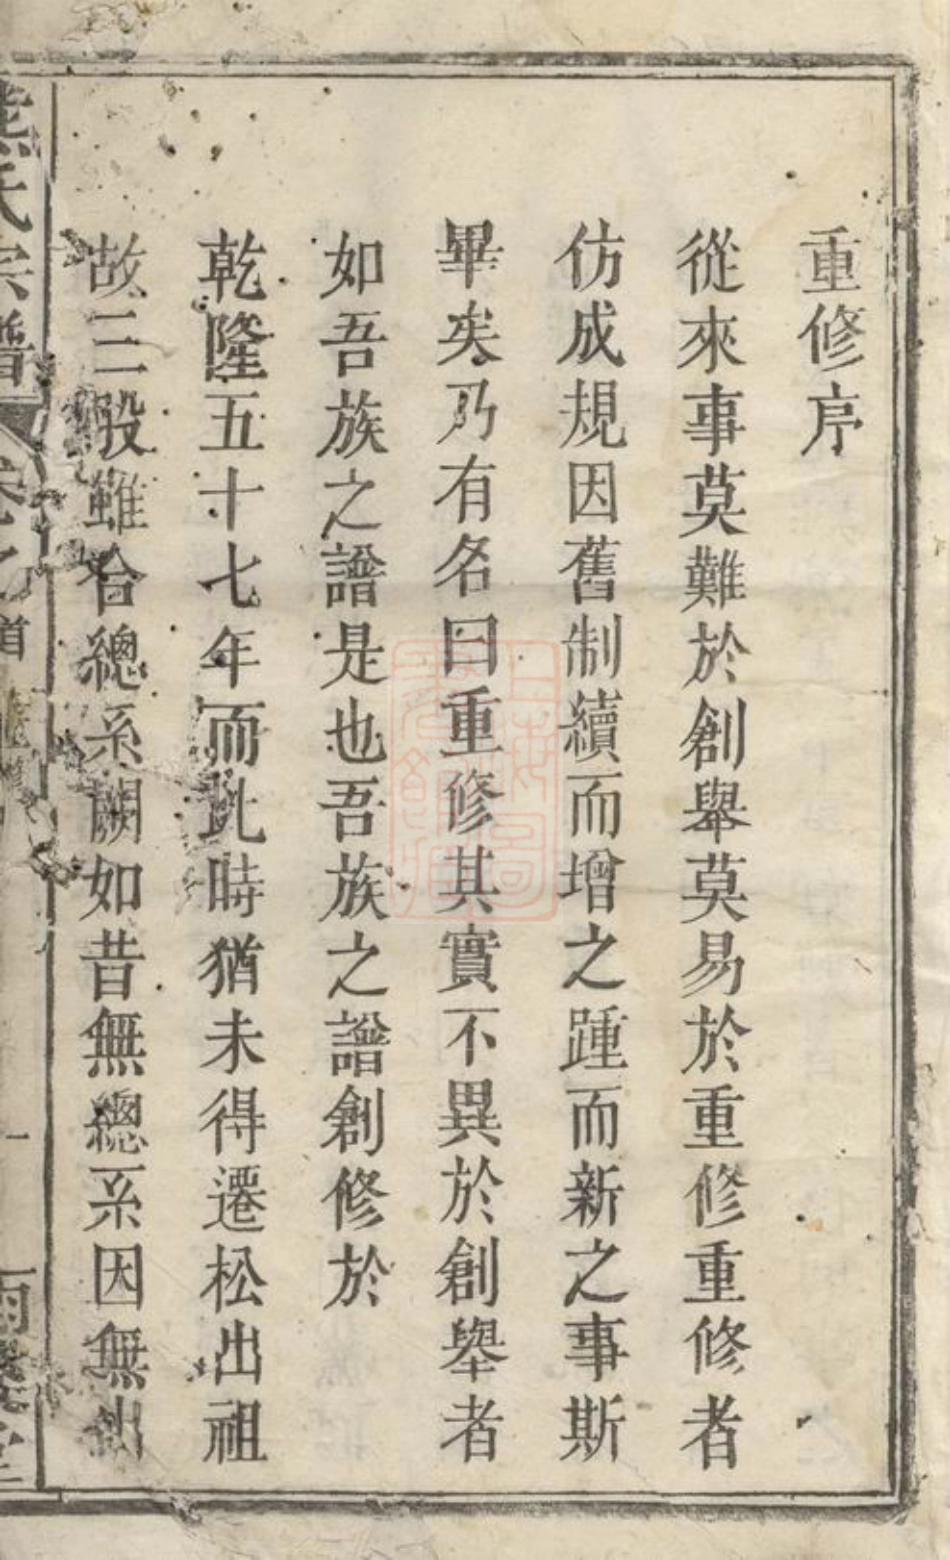 重修序
從來事莫難於創舉莫易於重修重修者
仿成規因舊制續而增之踵而新之事斯
畢矣乃有名曰重修其實不異於創舉者
如吾族之譜是也吾族之譜創修於
乾隆五十七年而此時猶未得遷松出祖
故三股雖合總系闕如昔無總系因無出
氏宗譜 卷之首